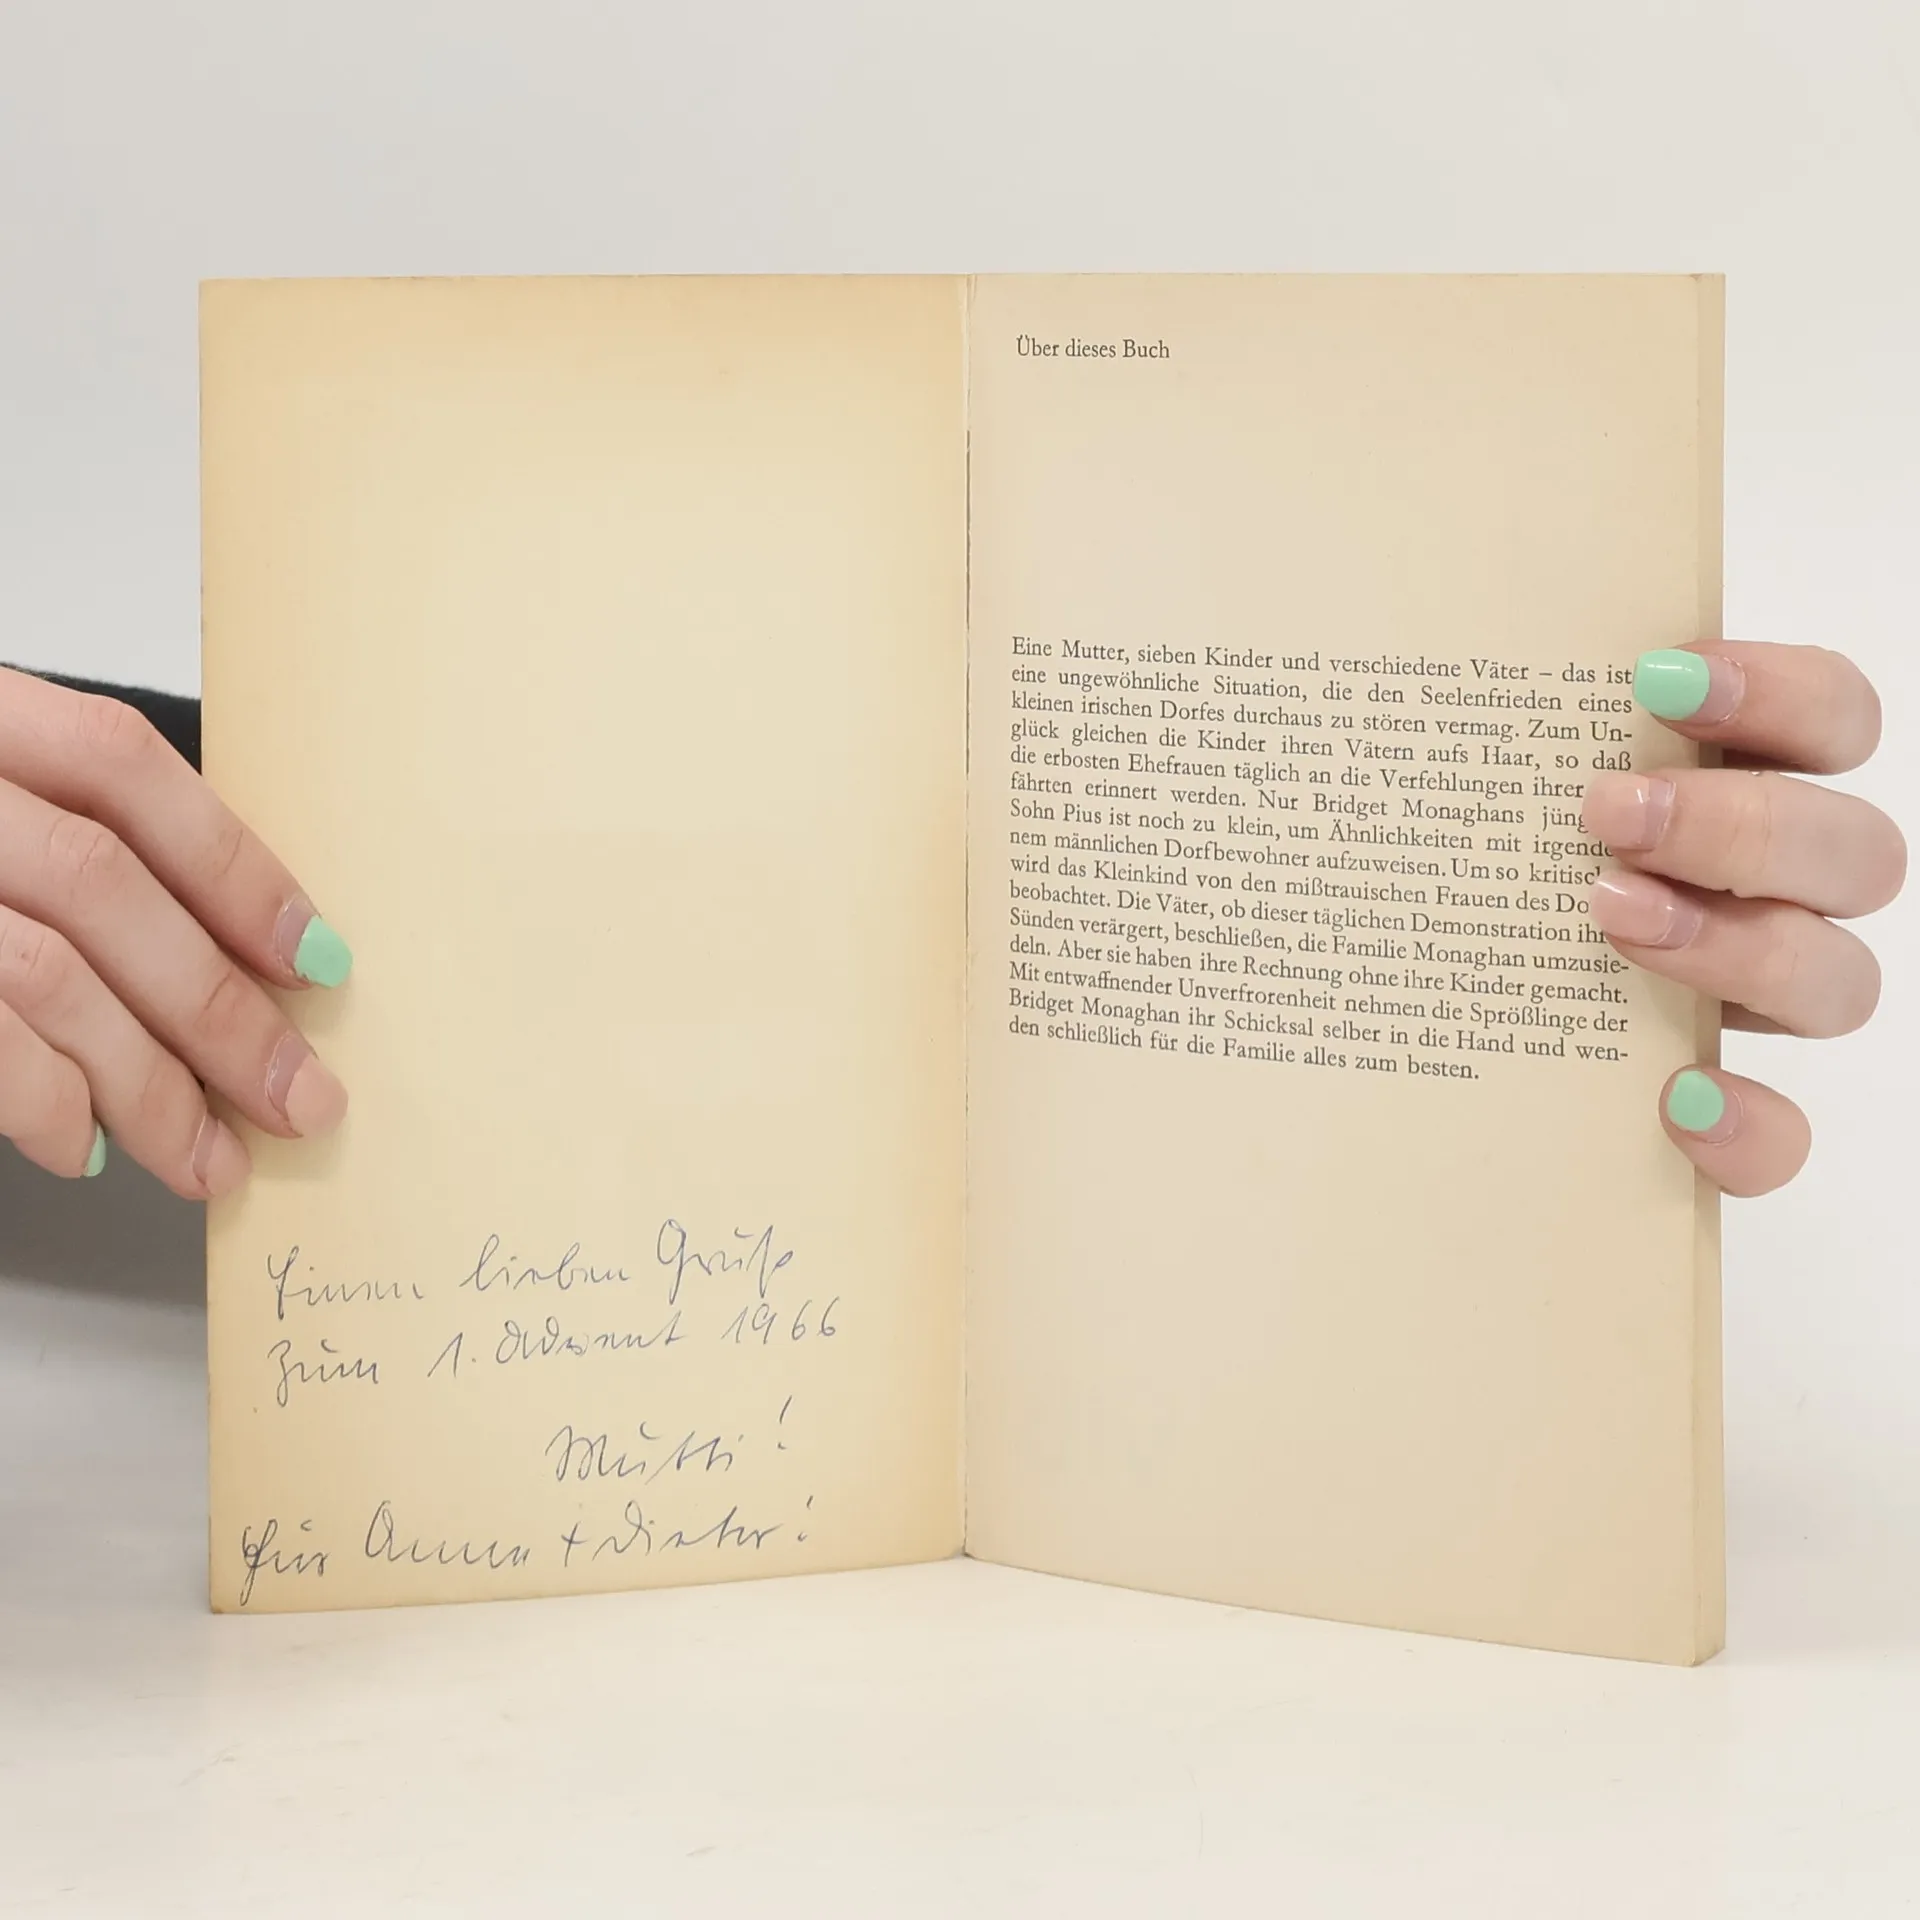 Einen lieben Gruß
zum 1. Advent 1966
Mutti!
für Anne + Dieter!
Über dieses Buch
Eine Mutter, sieben Kinder und verschiedene Väter – das ist
eine ungewöhnliche Situation, die den Seelenfrieden eines
kleinen irischen Dorfes durchaus zu stören vermag. Zum Un-
glück gleichen die Kinder ihren Vätern aufs Haar, so daß
die erbosten Ehefrauen täglich an die Verfehlungen ihrer
fährten erinnert werden. Nur Bridget Monaghans jüng
Sohn Pius ist noch zu klein, um Ähnlichkeiten mit irgende
nem männlichen Dorfbewohner aufzuweisen. Um so kritisc
wird das Kleinkind von den mißtrauischen Frauen des Do
beobachtet. Die Väter, ob dieser täglichen Demonstration ihr
Sünden verärgert, beschließen, die Familie Monaghan umzusie-
deln. Aber sie haben ihre Rechnung ohne ihre Kinder gemacht.
Mit entwaffnender Unverfrorenheit nehmen die Sprößlinge der
Bridget Monaghan ihr Schicksal selber in die Hand und wen-
den schließlich für die Familie alles zum besten.